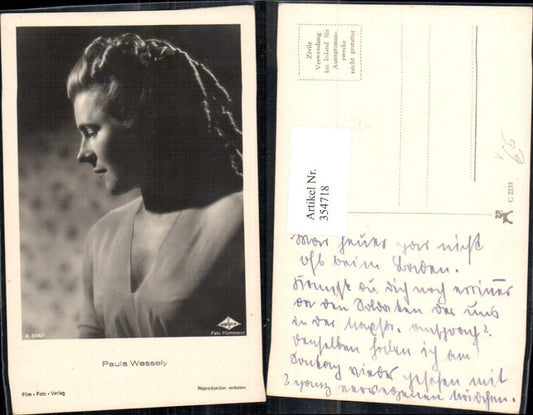 A 3104/1
Foto Hämmerer
Paula Wessely
Film - Foto - Verlag
Reproduktion verboten
Zivile
Verwendung
im Inland für
Autogramm-
zwecke
nicht gestattet
Artikel Nr.
354718
C 2235
War heuer gar nicht
oft beim Baden.
Kannst du dich noch erinnern
an den Soldaten der uns
in der ansprach?
Denselben habe ich am
Sonntag wieder gesehen mit
3 ganz Mädchen.